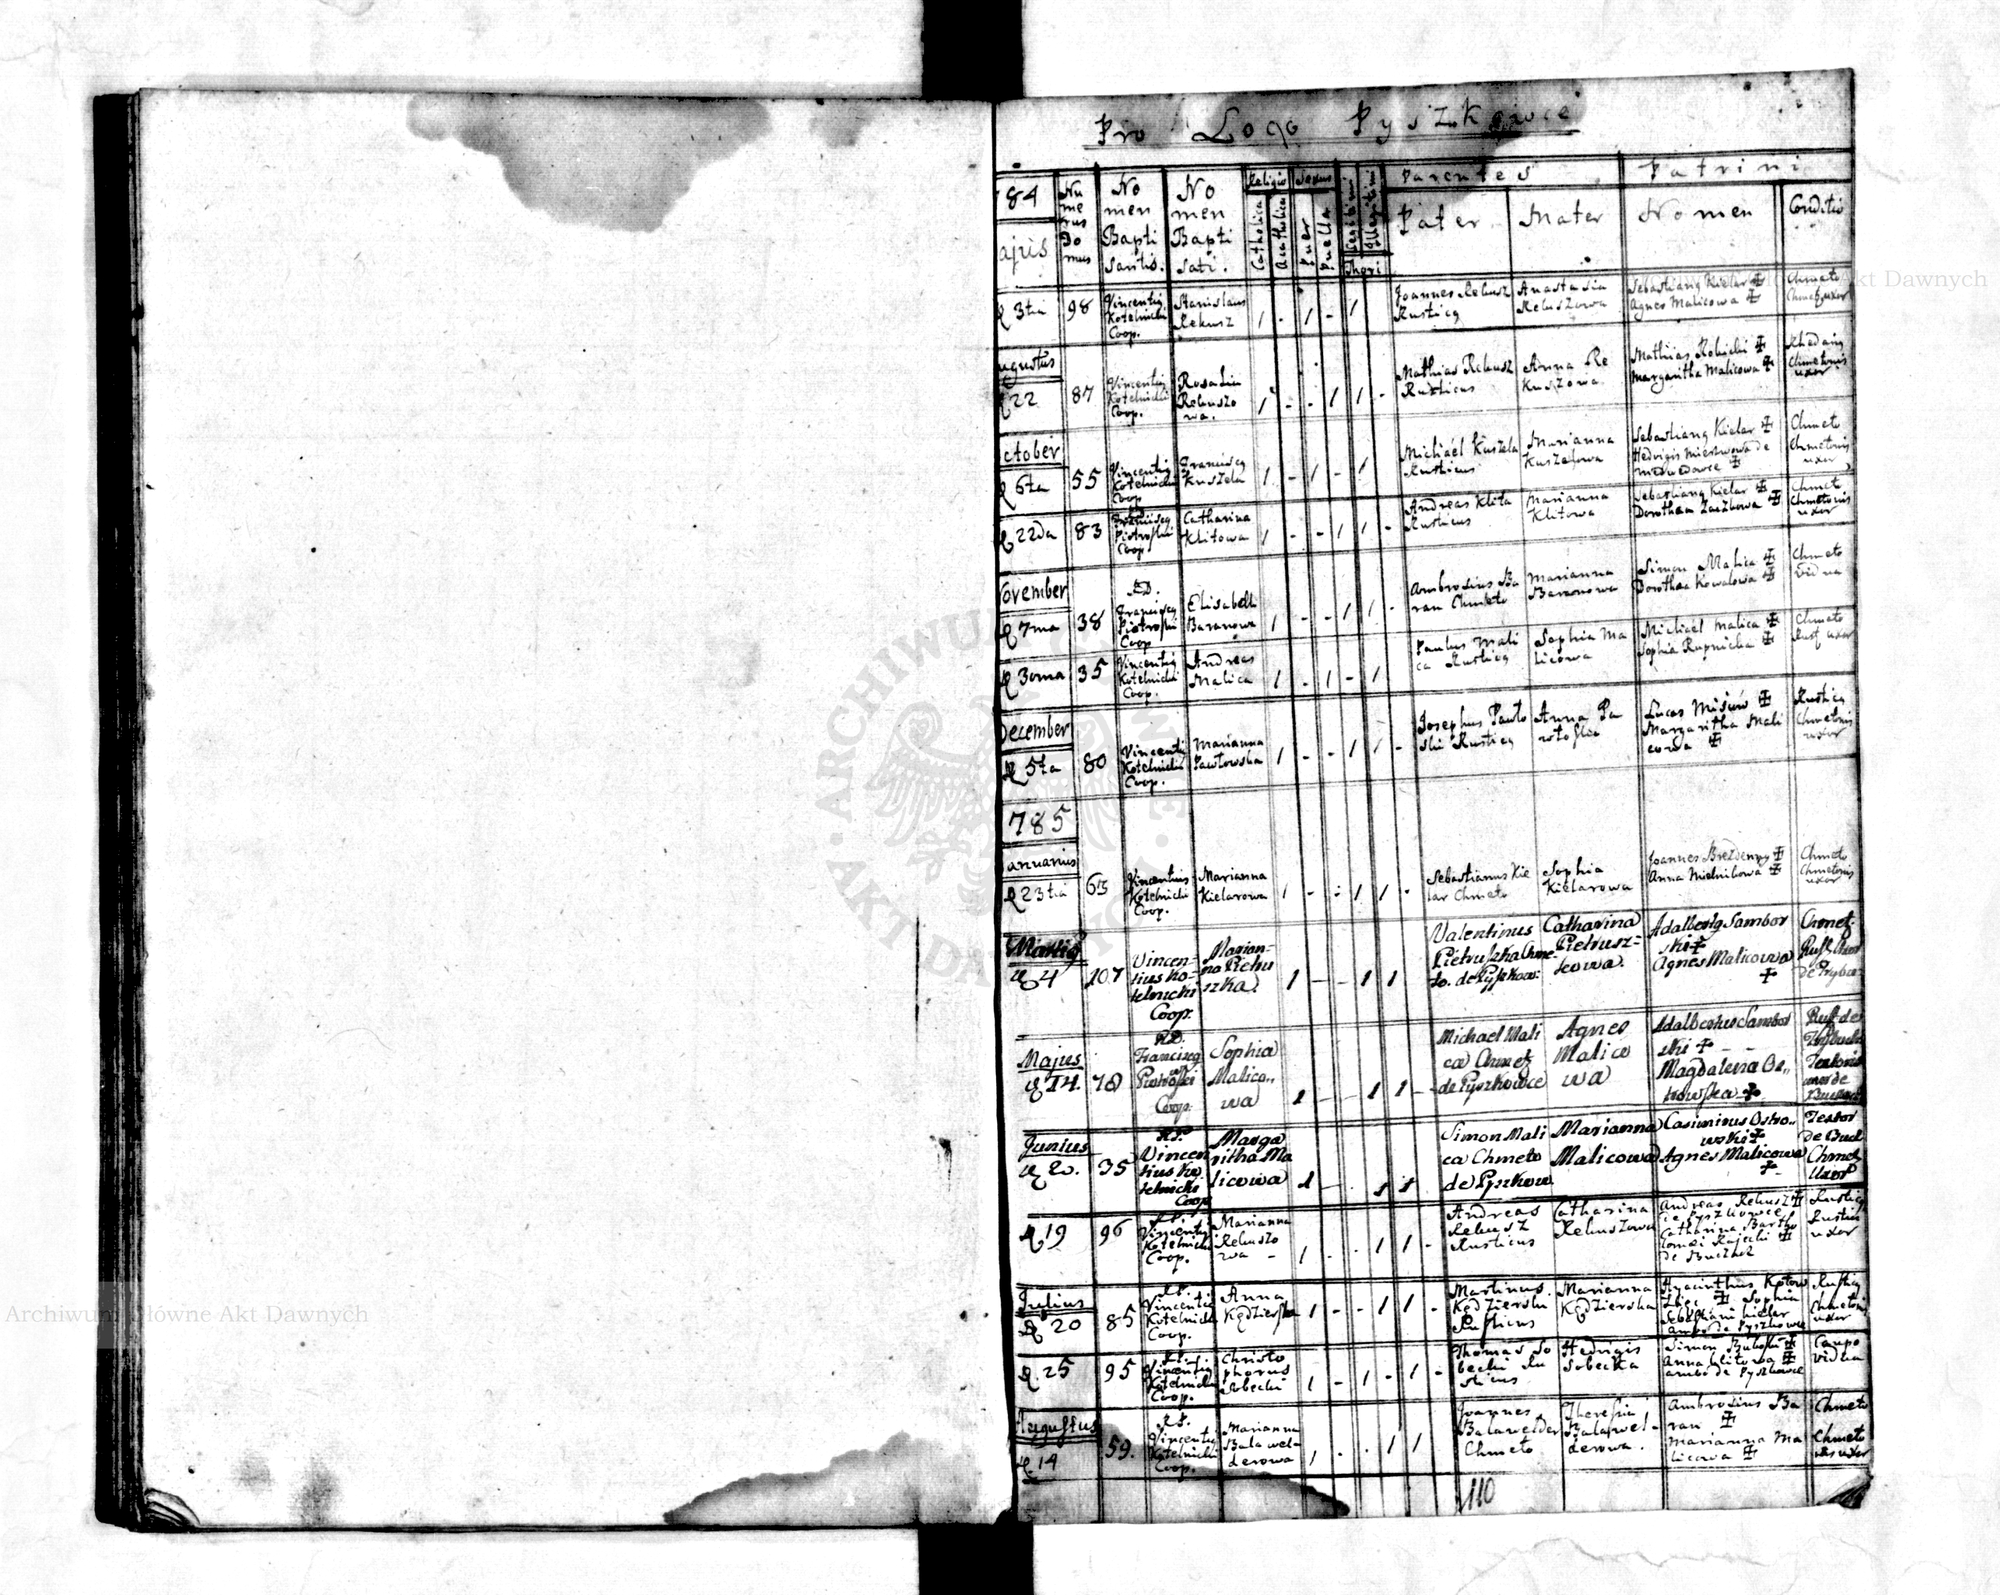 Pro Loco Pyszkowce
784
Majus
Numerus Domus
Nomen Baptisantis.
Nomen Baptisati.
Religio
Catholica
Acatholica
Sexus
Puer
Puella
Legitimi
Illegitimi
Thori
Parentes
Pater
Mater
Patrini
Nomen
Conditio
3tia 98 Vincentiq Kotelnicki Coop. Stanislaus Rekusz 1 - 1 - 1 Joannes Rekusz Rusticq Anastasia Rekuszowa Sebastianq Kielar ✠ Agnes Malicowa ✠ Chmeto Chmet. uxor
Augustus
22 87 Vincentiq Kotelnicki Coop. Rosalia Rekuszowa. 1 - - 1 1 - Mathias Rekusz Rusticus Anna Rekuszowa Mathias Robicki ✠ Margaritha Malicowa ✠ Chmetonis uxor
October
6ta 55 Vincentiq Kotelnicki Coop Franciscq Kuszela 1 - 1 - 1 Michaël Kuszela Rusticus Marianna Kuszelowa Sebastianq Kielar ✠ Hedvigis de ✠ Chmeto Chmetonis uxor
22da 83 Franciscq Piotroski Coop Catharina Klitowa 1 - - 1 1 - Andreas Klita Rusticus Marianna Klitowa Sebastianq Kielar ✠ Dorothea Zaczkowa ✠ Chmeto Chmetonis uxor
November
7ma 38 RD. Franciscq Piotroski Coop Elisabeth Baranowa 1 - - 1 1 - Ambrosius Baran Chmeto Marianna Baranowa Simon Malica ✠ Dorothea Kowalowa ✠ Chmeto Vidua
30ma 35 Vincentiq Kotelnicki Coop. Andreas Malica 1 - 1 - 1 Paulus Malica Rusticq Sophia Malicowa Michaël Malica ✠ Sophia Rupnicka ✠ Chmeto Rust. uxor
December
5ta 80 Vincentiq Kotelnicki Coop. Marianna Pawlowska 1 - - 1 1 - Josephus Pawloski Rusticq Anna Pawloska Lucas Misiuw ✠ Margaritha Malicowa ✠ Rusticq Chmetonis uxor
785
Januarius
23tia 65 Vincentius Kotelnicki Coop. Marianna Kielarowa 1 - - 1 1 - Sebastianus Kielar Chmeto Sophia Kielarowa Joannes ✠ Anna Mielnikowa ✠ Chmeto Chmetonis uxor
Martiq
4 107 Vincentius Kotelnicki Coop. Marianna Pietruszka. 1 - - 1 1 Valentinus Pietruszka Chmeto. de Pyszkow: Catharina Pietruszkowa. Adalbertq Samborski ✠ Agnes Malicowa ✠ Chmet. Rust. Uxor
Majus
14. 78 RD. Franciscq Piotroski Coop. Sophia Malicowa 1 - - 1 1 - Michael Malica Chmet. de Pyszkowce Agnes Malicowa Adalbertus Samborski ✠ Magdalena ✠ Rust. de
Junius
2. 35 RD. Vincentius Kotelnicki Coop. Margaritha Malicowa 1 - 1 1 Simon Malica Chmeto de Pyszkow Marianna Malicowa Casimirus Ostrowski ✠ Agnes Malicowa ✠ Textor Chmet. Uxor
19 96 Vincentiq Kotelnicki Coop. Marianna Rekuszowa - 1 - - 1 1 - Andreas Rekusz Rusticus Catharina Rekuszowa Andreas Rekusz ✠ de Pyszkowce Catharina ✠ de Buczacz Rusticq Rustici uxor
Julius
20 85 Vincentiq Kotelnicki Coop. Anna Kędzierska 1 - - 1 1 - Martinus Kędzierski Rusticus Marianna Kędzierska Hyacinthus ✠ Sophia Sebastiani Kielar ambo de Pyszkowce Rusticq Chmetonis uxor
25 95 Vincentiq Kotelnicki Coop. Christophorus Sobecki 1 - 1 - 1 - Thomas Sobecki Rusticus Hedvigis Sobecka Simon ✠ Anna Klitowa ✠ ambo de Pyszkowce Caupo Vidua
Augustus
14 59. Vincentiq Kotelnicki Coop. Marianna Balawelderowa 1 - - 1 1 Joannes Balawelder Chmeto Theresia Balawelderowa. Ambrosius Baran ✠ Marianna Malicowa ✠ Chmeto Chmeto uxor
110
Archiwum Główne Akt Dawnych
ARCHIWUM GŁÓWNE AKT DAWNYCH